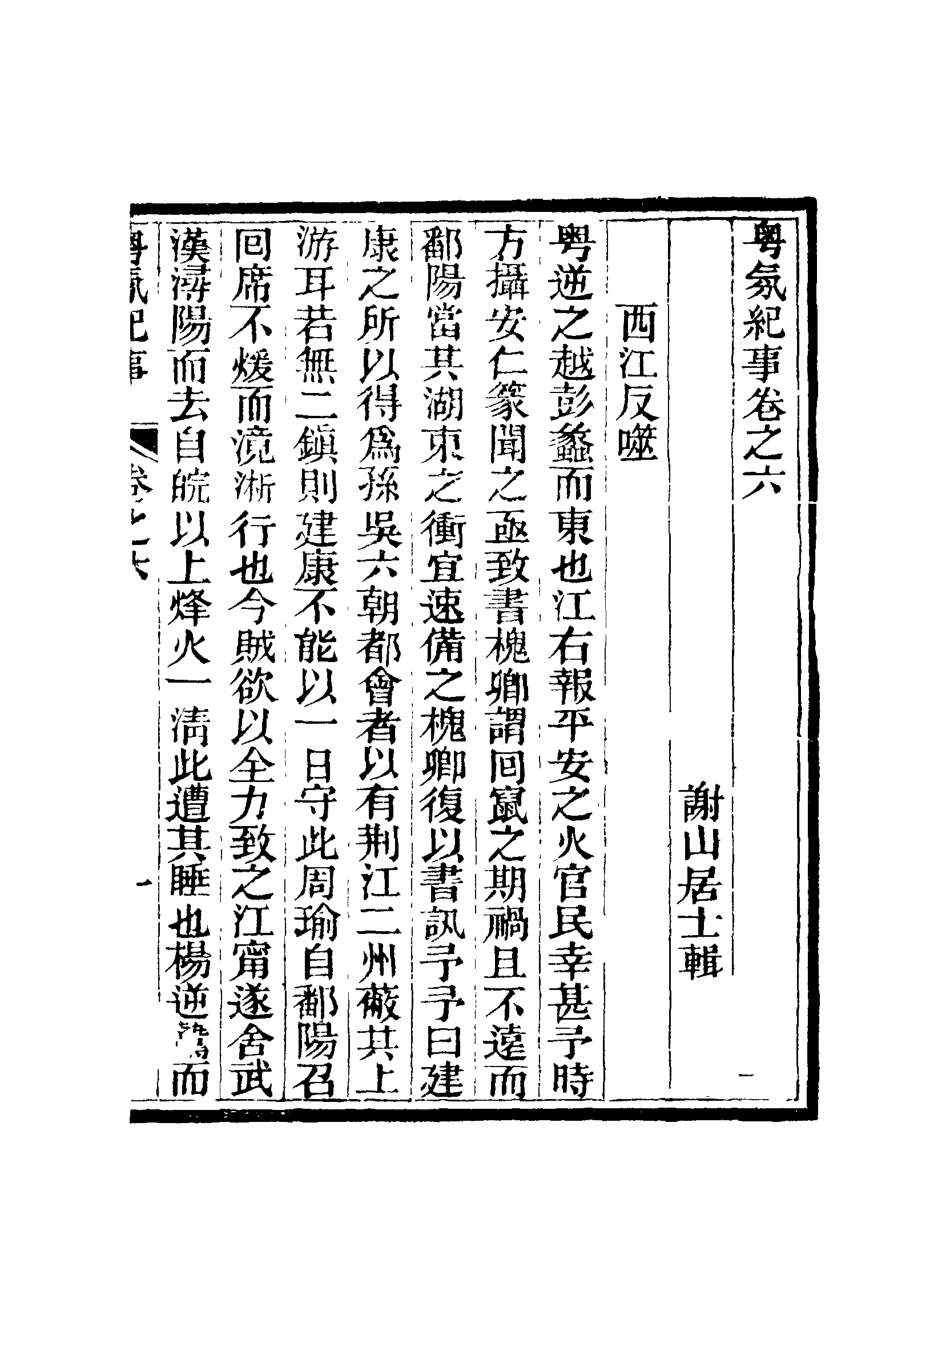 粤氛紀事卷之六
謝山居士輯
西江反噬
粤逆之越彭蠡而東也江右報平安之火官民幸甚予時
方攝安仁篆聞之亟致書槐卿謂囘竄之期禍且不遠而
鄱陽當其湖東之衝宜速備之槐卿復以書訊予予曰建
康之所以得爲孫吳六朝都會者以有荆江二州蔽其上
游耳若無二鎭則建康不能以一日守此周瑜自鄱陽召
囘席不煖而滰淅行也今賊欲以全力致之江甯遂舍武
漢潯陽而去自皖以上烽火一淸此遭其睡也楊逆鷙而
粤氛紀事
卷之六
一